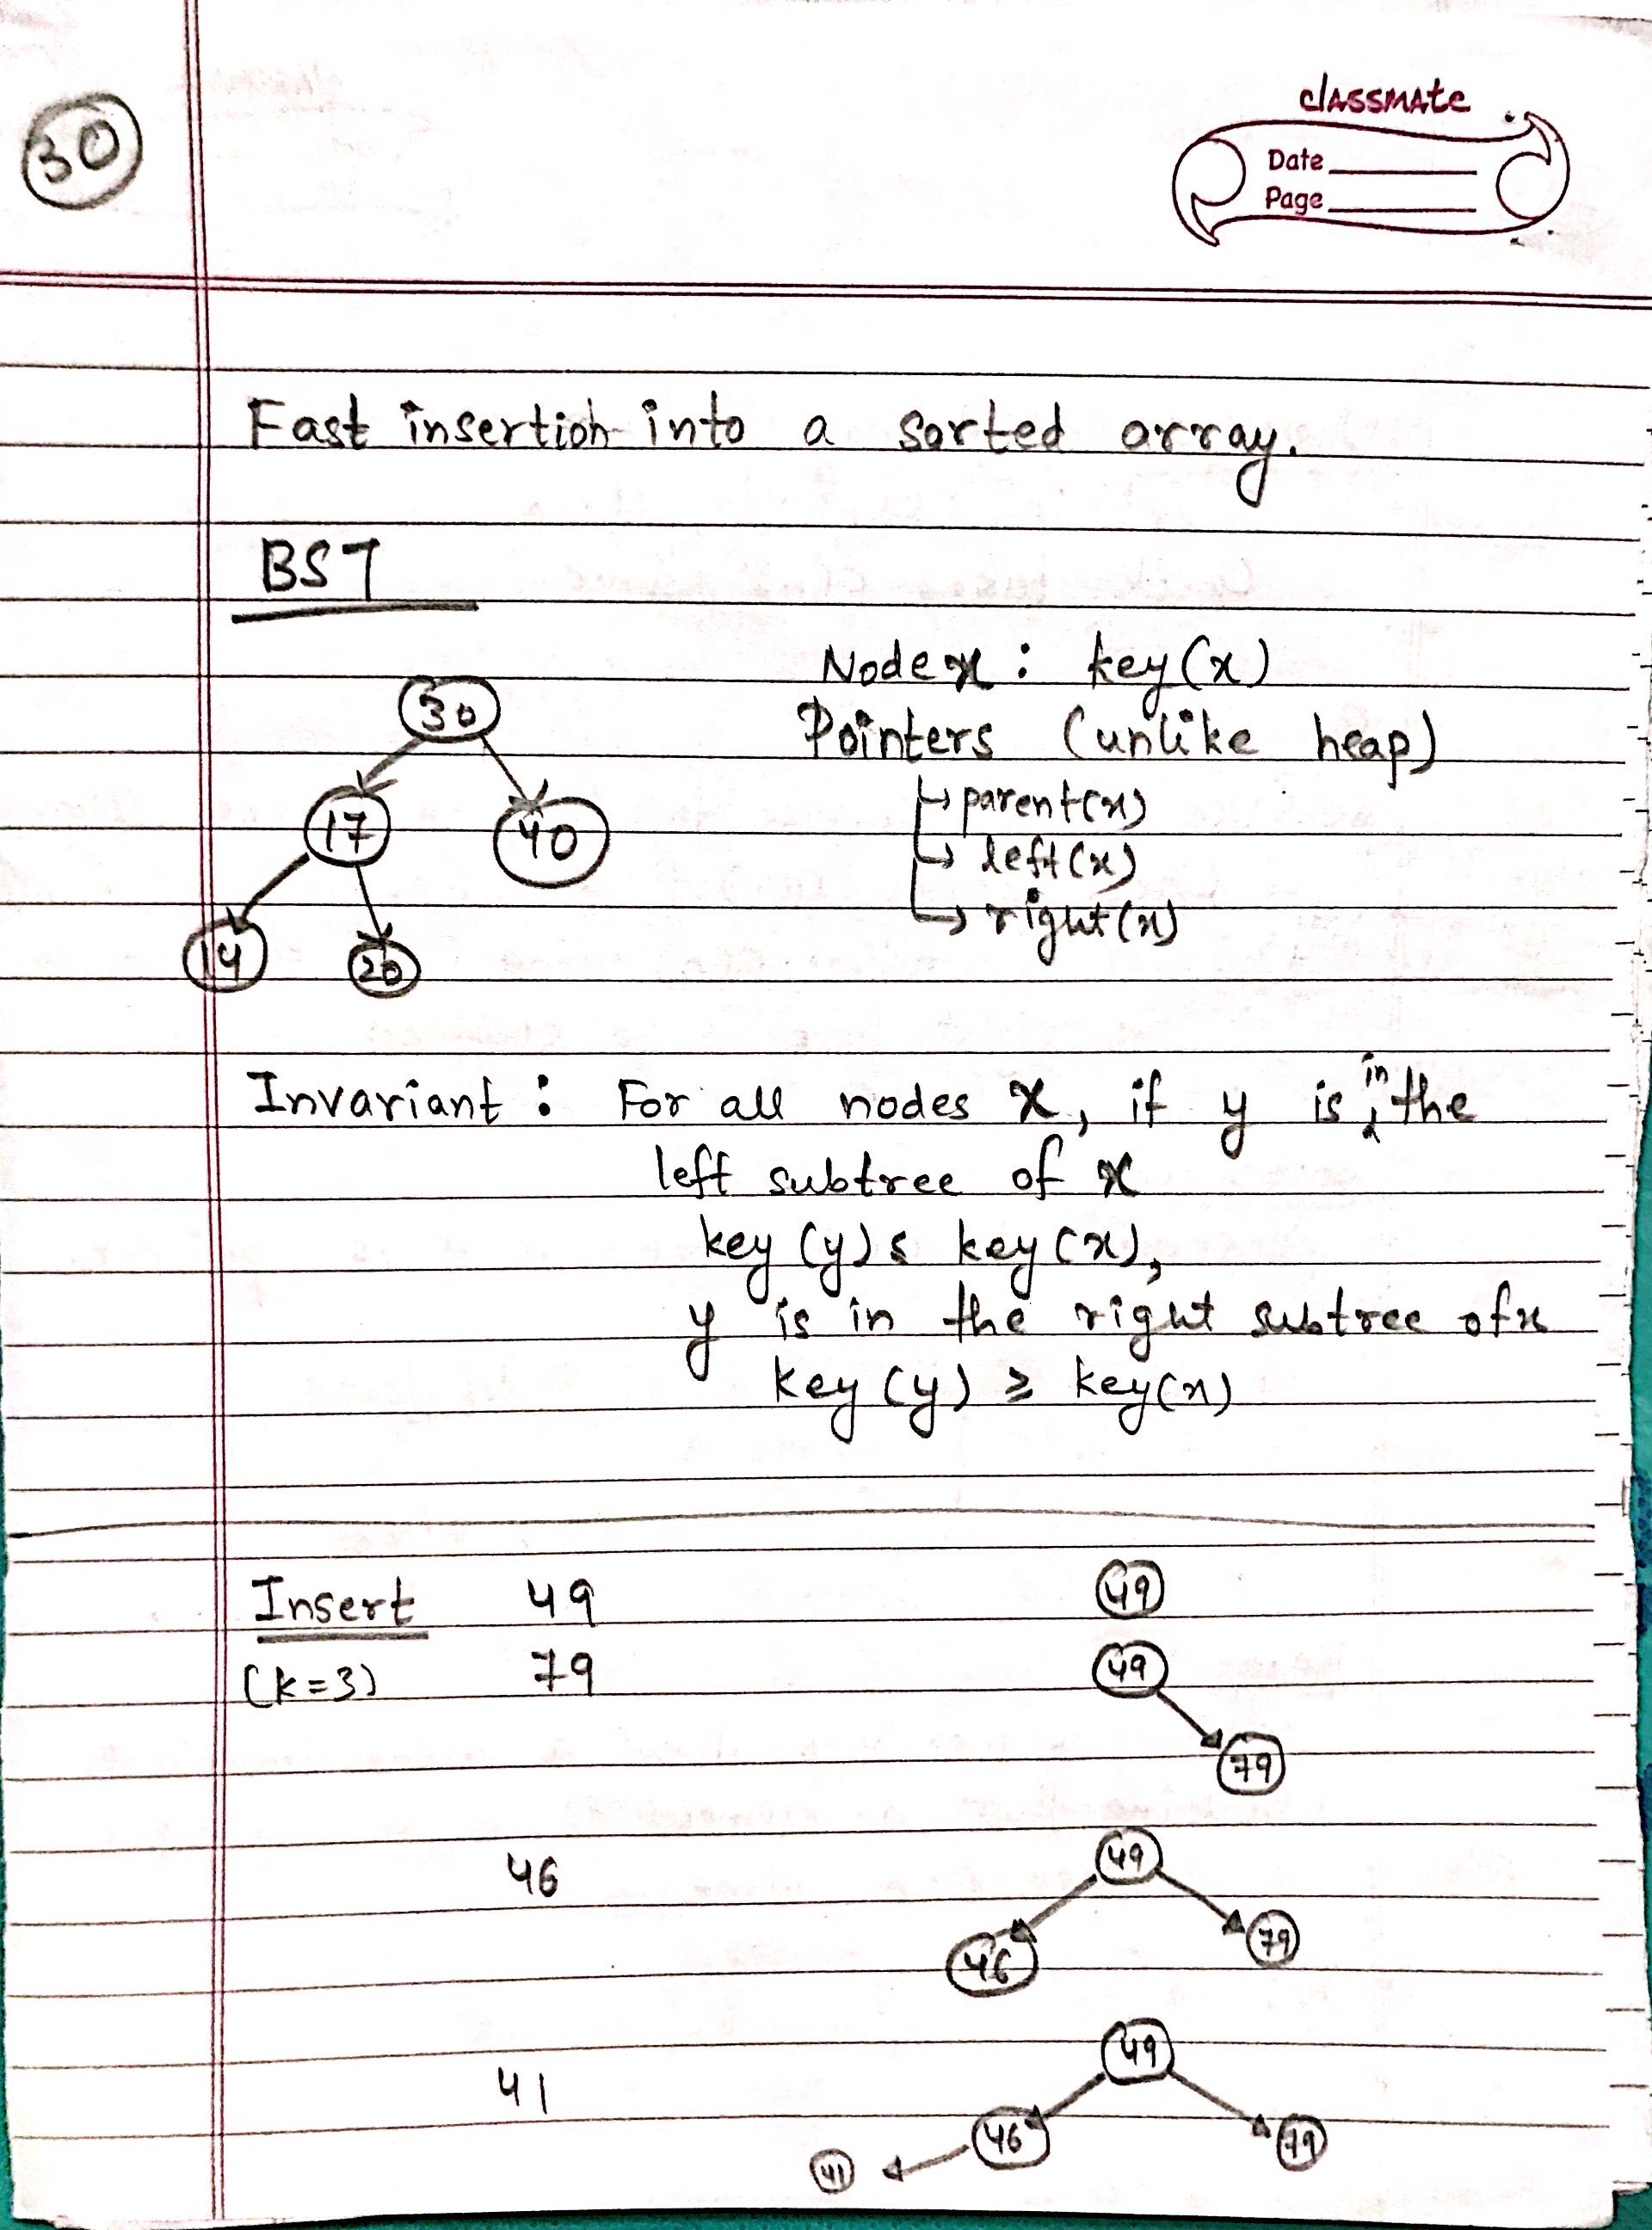 30
classmate
Date
Page
Fast insertion into a sorted array.
BST
Node x : key(x)
Pointers (unlike heap)
↳ parent(x)
↳ left(x)
↳ right(x)
30
17
40
14
20
Invariant : For all nodes x, if y is in the
left subtree of x
key(y) ≤ key(x),
y is in the right subtree of x
key(y) ≥ key(x)
Insert 49
49
(k=3) 79
49
79
46
49
46
79
41
49
46
79
41